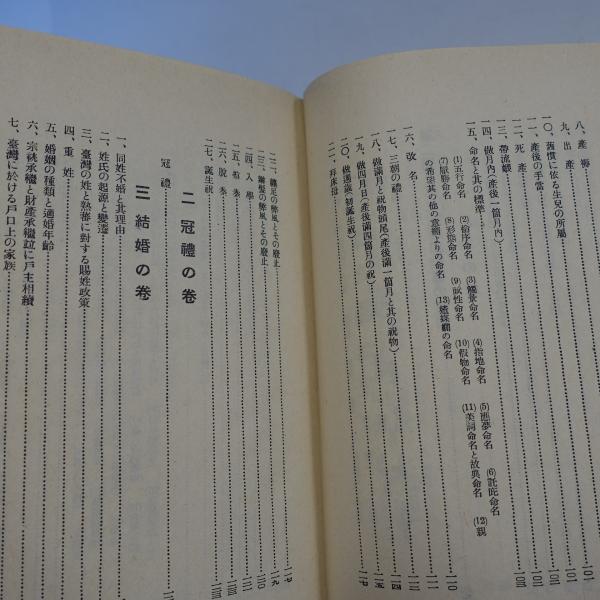 八、產褥
九、出產
一〇、舊慣に依る生兒の所屬
一一、產後の手當
一二、死產
一三、帶流蝦
一四、做月內(產後一箇月內)
一五、命名と其の標準
(1)五行命名 (2)倫序命名 (3)觸景命名 (4)指地命名 (5)應夢命名 (6)託庇命名
(7)厭勝命名 (8)形態命名 (9)賦性命名 (10)假物命名 (11)美詞命名と故典命名 (12)親
の希望其の他の意義よりの命名 (13)豬屎欄の命名
一六、改名
一七、三朝の禮
一八、做滿月と祝物頭尾(產後滿一箇月と其の祝物)
一九、做四月日(產後滿四箇月の祝)
二〇、做週歲(初誕生祝)
二一、拜床母
二二、纏足の弊風とその廢止
二三、辮髮の弊風とその廢止
二四、入學
二五、捾豢
二六、脫豢
二七、誕生祝
二 冠禮の卷
冠禮
三 結婚の卷
一、同姓不婚と其理由
二、姓氏の起源と變遷
三、臺灣の姓と熟蕃に對する賜姓政策
四、重姓
五、婚姻の種類と適婚年齡
六、宗祧承繼と財產承繼竝に戶主相續
七、臺灣に於ける戶口上の家族